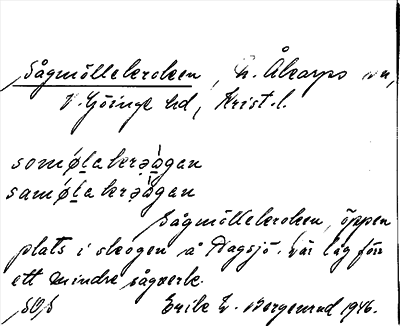 Sågmöllekroken, N. Åkarps sn,
V. Göinge hd, Krist. l.
somø̀lakrəạgan
samø̀lakrəạgan
Sågmöllekroken, öppen
plats i skogen å Hagsjö. Här låg förr
ett mindre sågverk.
Erik W. Bergenrud 1946.